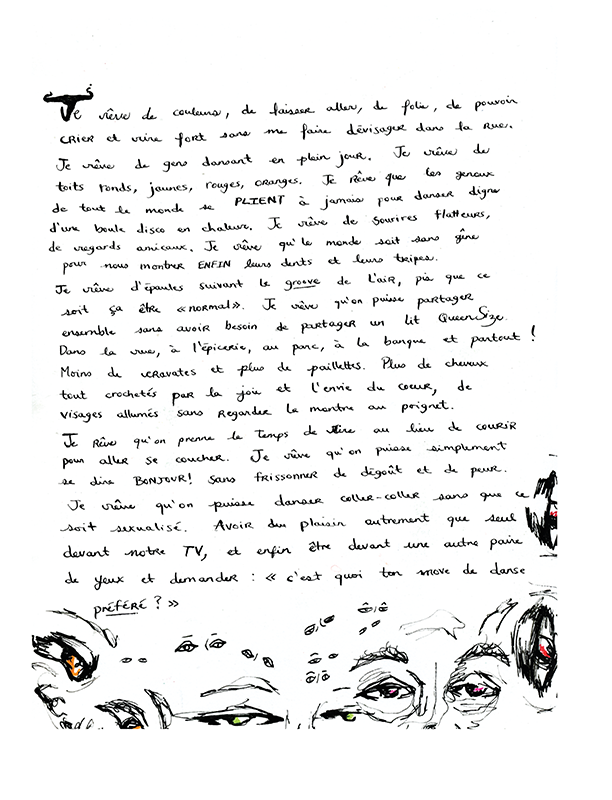 Je rêve de couleurs, de laisser aller, de folie, de pouvoir
CRIER et rire fort sans me faire DÉVISAGER dans la rue.
Je rêve de gens dansant en plein jour. Je rêve de
toits ronds, jaunes, rouges, oranges. Je Rêve que les genoux
de tout le monde se PLIENT à jamais pour danser digne
d'une boule disco en chaleur. Je rêve de sourires flatteurs,
de regards amicaux. Je rêve qu'le monde soit sans gêne
pour nous montrer ENFIN leurs dents et leurs tripes.
Je rêve d'épaules suivant le groove de l'air, pis que ce
soit ça être «normal». Je rêve qu'on puisse partager
ensemble sans avoir besoin de partager un lit QueenSize.
Dans la rue, à l'épicerie, au parc, à la banque et partout !
Moins de cravates et plus de paillettes. Plus de cheveux
tout crochetés par la joie et l'envie du coeur, de
visages allumés sans regarder la montre au poignet.
Je Rêve qu'on prenne le temps de rire au lieu de COURIR
pour aller se coucher. Je rêve qu'on puisse simplement
se dire BONJOUR! sans frissonner de dégoût et de peur.
Je rêve qu'on puisse danser coller-coller sans que ce
soit sexualisé. Avoir du plaisir autrement que seul
devant notre TV, et enfin être devant une autre paire
de yeux et demander : « c'est quoi ton move de danse
préféré ? »